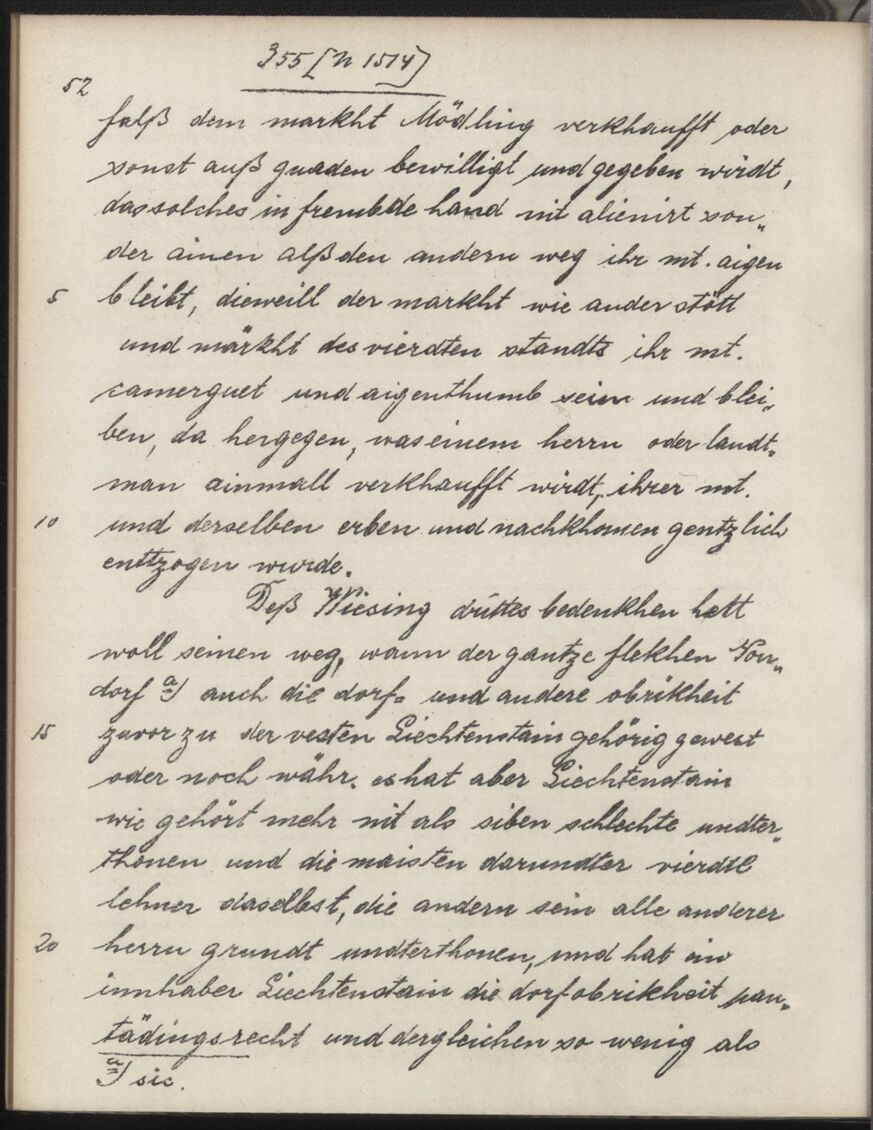 355 [N 1514]
52
falß dem markht Mödling verkhaufft oder
sonst auß gnaden bewilligt und gegeben wirdt,
das solches in frembde hand nit alienirt son„
der ainen alß den andern weg ihr mt. aigen
5 bleibt, dieweill der markht wie ander stött
und märkht des vierdten standts ihr mt.
camerguet und aigenthumb sein und blei„
ben, da hergegen, was einem herrn oder landt„
man ainmall verkhaufft wirdt, ihrer mt.
10 und derselben erben und nachkhomen gentzlich
enttzogen wurde.
Deß Wiesing drittes bedenkhen hett
woll seinen weg, wann der gantze flekhen Von„
dorf a) auch die dorf= und andere obrikheit
15 zuvor zu der vesten Liechtenstain gehörig gewest
oder noch währ. es hat aber Liechtenstain
wie gehört mehr nit als siben schlechte undter„
thonen und die maisten darundter vierdtl
lehner daselbst, die andern sein alle anderer
20 herrn grundt undterthonen, und hat ein
innhaber Liechtenstain die dorfobrikheit pan„
tädingsrecht und dergleichen so wenig als
a) sic.